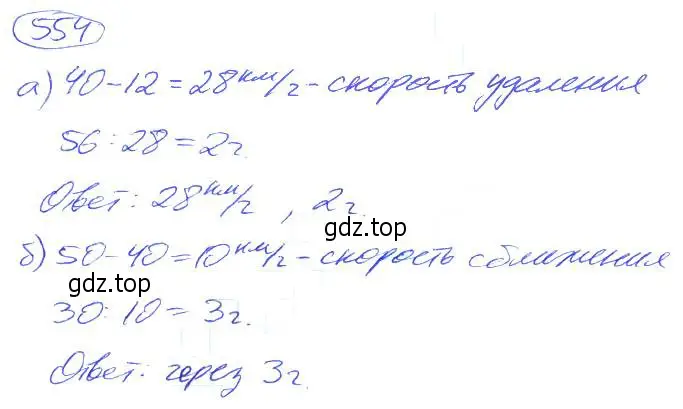 554
а) 40-12=28 км/г - скорость удаления
56:28=2г.
Ответ: 28 км/г, 2г.
gdz.top
б) 50-40=10 км/г - скорость сближения
gdz.top
30:10=3г.
Ответ: через 3г.
gdz.top